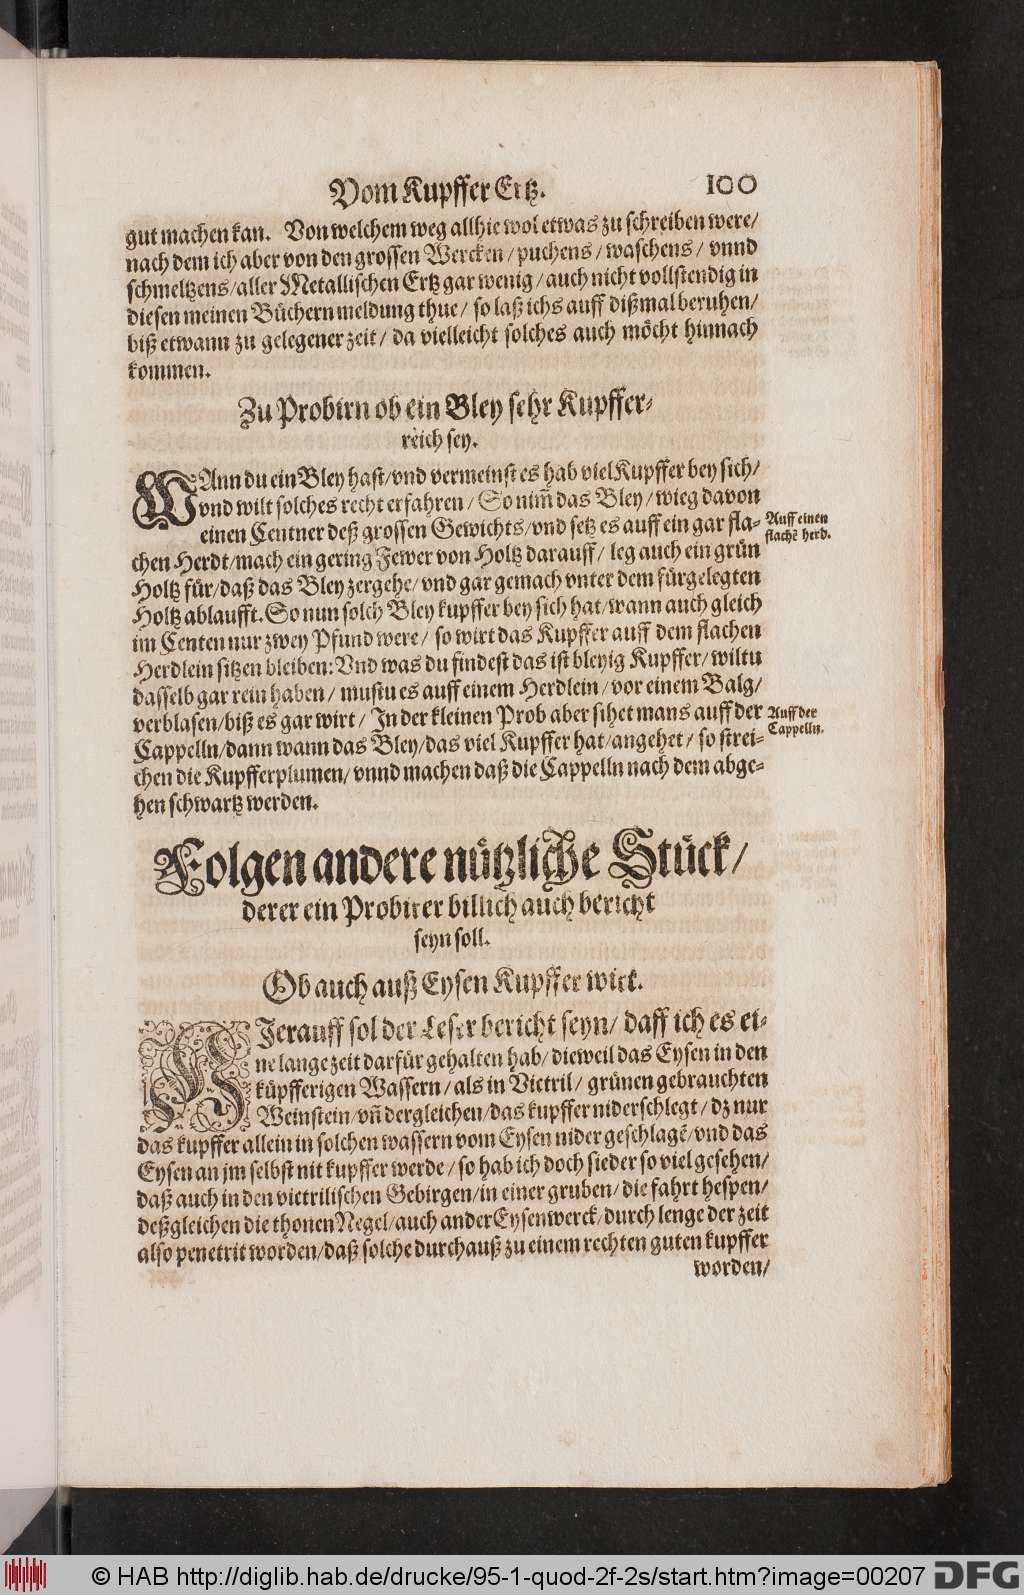 Vom Kupffer Ertz. 100
gut machen kan. Von welchem weg allhie wol etwas zu schreiben were/
nach dem ich aber von den grossen Wercken/ puchens/ waschens/ vnnd
schmeltzens/ aller Metallischen Ertz gar wenig/ auch nicht vollstendig in
diesen meinen Büchern meldung thue/ so laß ichs auff dißmal beruhen/
biß etwann zu gelegener zeit/ da vielleicht solches auch möcht hinnach
kommen.
Zu Probirn ob ein Bley sehr Kupffer-
reich sey.
WAnn du ein Bley hast/ vnd vermeinst es hab viel Kupffer bey sich/
vnd wilt solches recht erfahren/ So nim̃ das Bley/ wieg davon
einen Centner deß grossen Gewichts/ vnd setz es auff ein gar fla-
Auff einen
flachẽ herd.
chen Herdt/ mach ein gering Fewer von Holtz darauff/ leg auch ein grün
Holtz für/ daß das Bley zergehe/ vnd gar gemach vnter dem fürgelegten
Holtz ablaufft. So nun solch Bley kupffer bey sich hat/ wann auch gleich
im Centen nur zwey Pfund were/ so wirt das Kupffer auff dem flachen
Herdlein sitzen bleiben: Vnd was du findest das ist bleyig Kupffer/ wiltu
dasselb gar rein haben/ mustu es auff einem Herdlein/ vor einem Balg/
verblasen/ biß es gar wirt/ In der kleinen Prob aber sihet mans auff der
Auff der
Cappelln.
Cappelln/ dann wann das Bley/ das viel Kupffer hat/ angehet/ so strei-
chen die Kupfferplumen/ vnnd machen daß die Cappelln nach dem abge-
hen schwartz werden.
Folgen andere nützliche Stück/
derer ein Probirer billich auch bericht
seyn soll.
Ob auch auß Eysen Kupffer wirt.
HIerauff sol der Leser bericht seyn/ daß ich es ei-
ne lange zeit darfür gehalten hab/ dieweil das Eysen in den
küpfferigen Wassern/ als in Victril/ grünen gebrauchten
Weinstein/ vñ dergleichen/ das kupffer niderschlegt/ dz nur
das kupffer allein in solchen wassern vom Eysen nider geschlagẽ/ vnd das
Eysen an jm selbst nit kupffer werde/ so hab ich doch sieder so viel gesehen/
daß auch in den victrilischen Gebirgen/ in einer gruben/ die fahrt hespen/
deßgleichen die thonen Negel/ auch ander Eysenwerck/ durch lenge der zeit
also penetrit worden/ daß solche durchauß zu einem rechten guten kupffer
worden/
© HAB http://diglib.hab.de/drucke/95-1-quod-2f-2s/start.htm?image=00207 DFG